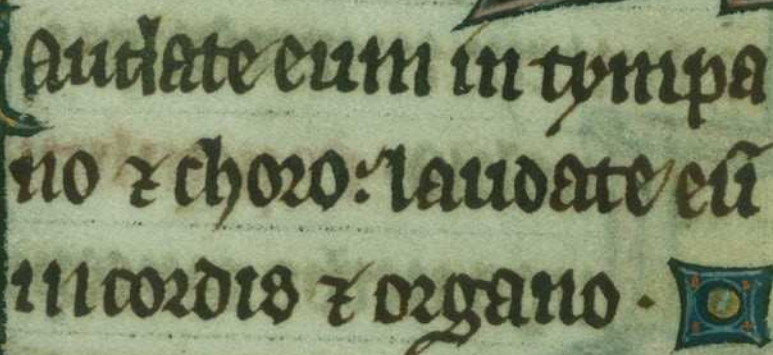 audate eum in tympa
no ⁊ choro: laudate eũ
in cordis ⁊ organo.